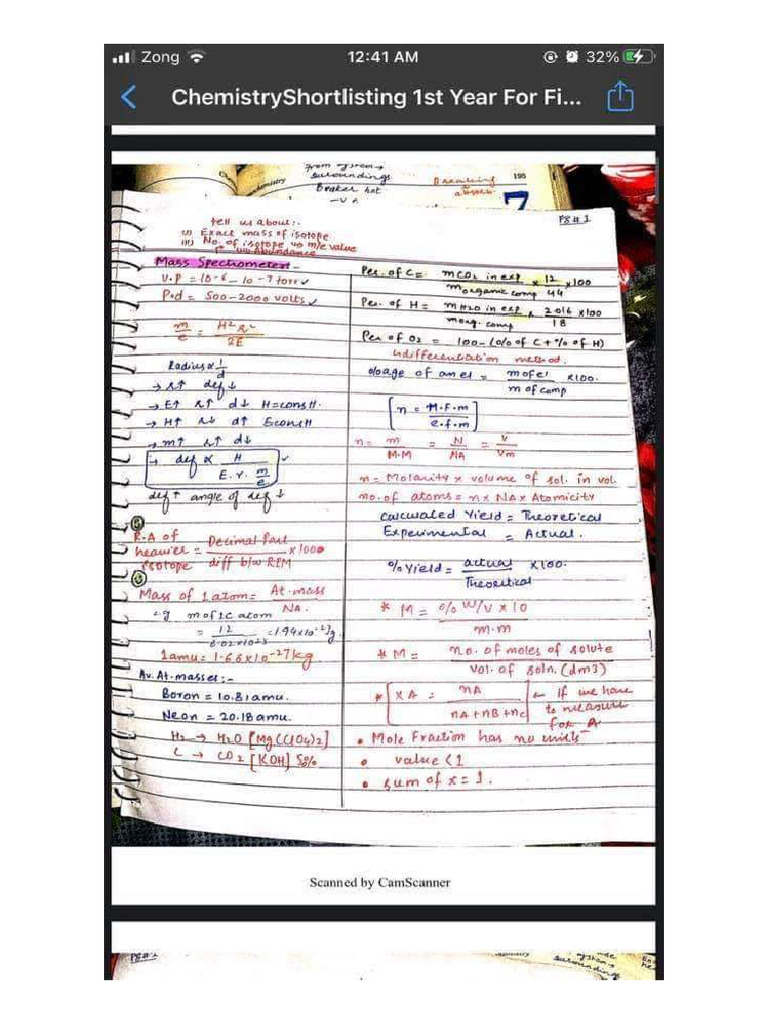 Zong
12:41 AM
32%
ChemistryShortlisting 1st Year For Fi...
from system →
surroundings
Breaking
195
-V A
Pg # 1
tell us about:-
i) Exact mass of isotope
ii) No. of isotope m/e value
Abundance
Mass Spectrometer:-
V.P = 10-6 - 10-7 torr ✓
P.d = 500-2000 volts ✓
m/e = H²r²/2E
Radius ∝ 1/d
→ r↑ def ↓
→ E↑ r↑ d↓ H=const.
→ H↑ r↓ d↑ Econst
→ m↑ r↑ d↓
→ def ∝ H / E.r. m/e ✓
def ↑ angle of def ↓
R.A of heavier isotope = Decimal Part / diff b/w R.I.M x 1000
Mass of 1 atom = At.mass / NA.
e.g m of 1C atom
= 12 / 6.02x10^23 = 1.94x10^-23 g
1amu = 1.66x10^-27 kg
Av. At. masses:-
Boron = 10.81amu.
Neon = 20.18amu.
H2 → H2O [Mg(ClO4)2]
C → CO2 [KOH] 50%
Per. of C = mCO2 in exp / m organic comp x 12/44 x100
Per. of H = mH2O in exp / m org. comp x 2.016/18 x100
Per of O2 = 100-(% of C + % of H)
method.
%age of an el = m of el / m of comp x100.
[n = M.F.m / e.f.m]
n = m/M.M = N/NA = V/Vm
n = Molarity x volume of sol. in vol.
no. of atoms = n x NA x Atomicity
Calculated Yield = Theoretical
Experimental = Actual.
% Yield = actual / Theoretical x100.
* M = % w/v x 10 / m.m
* M = no. of moles of solute / Vol. of soln. (dm3)
* [XA = nA / nA+nB+nc] ← If we have to measure for A
• Mole Fraction has no units
• value < 1
• sum of x = 1.
Scanned by CamScanner
Pg # 2
system →
surroundings